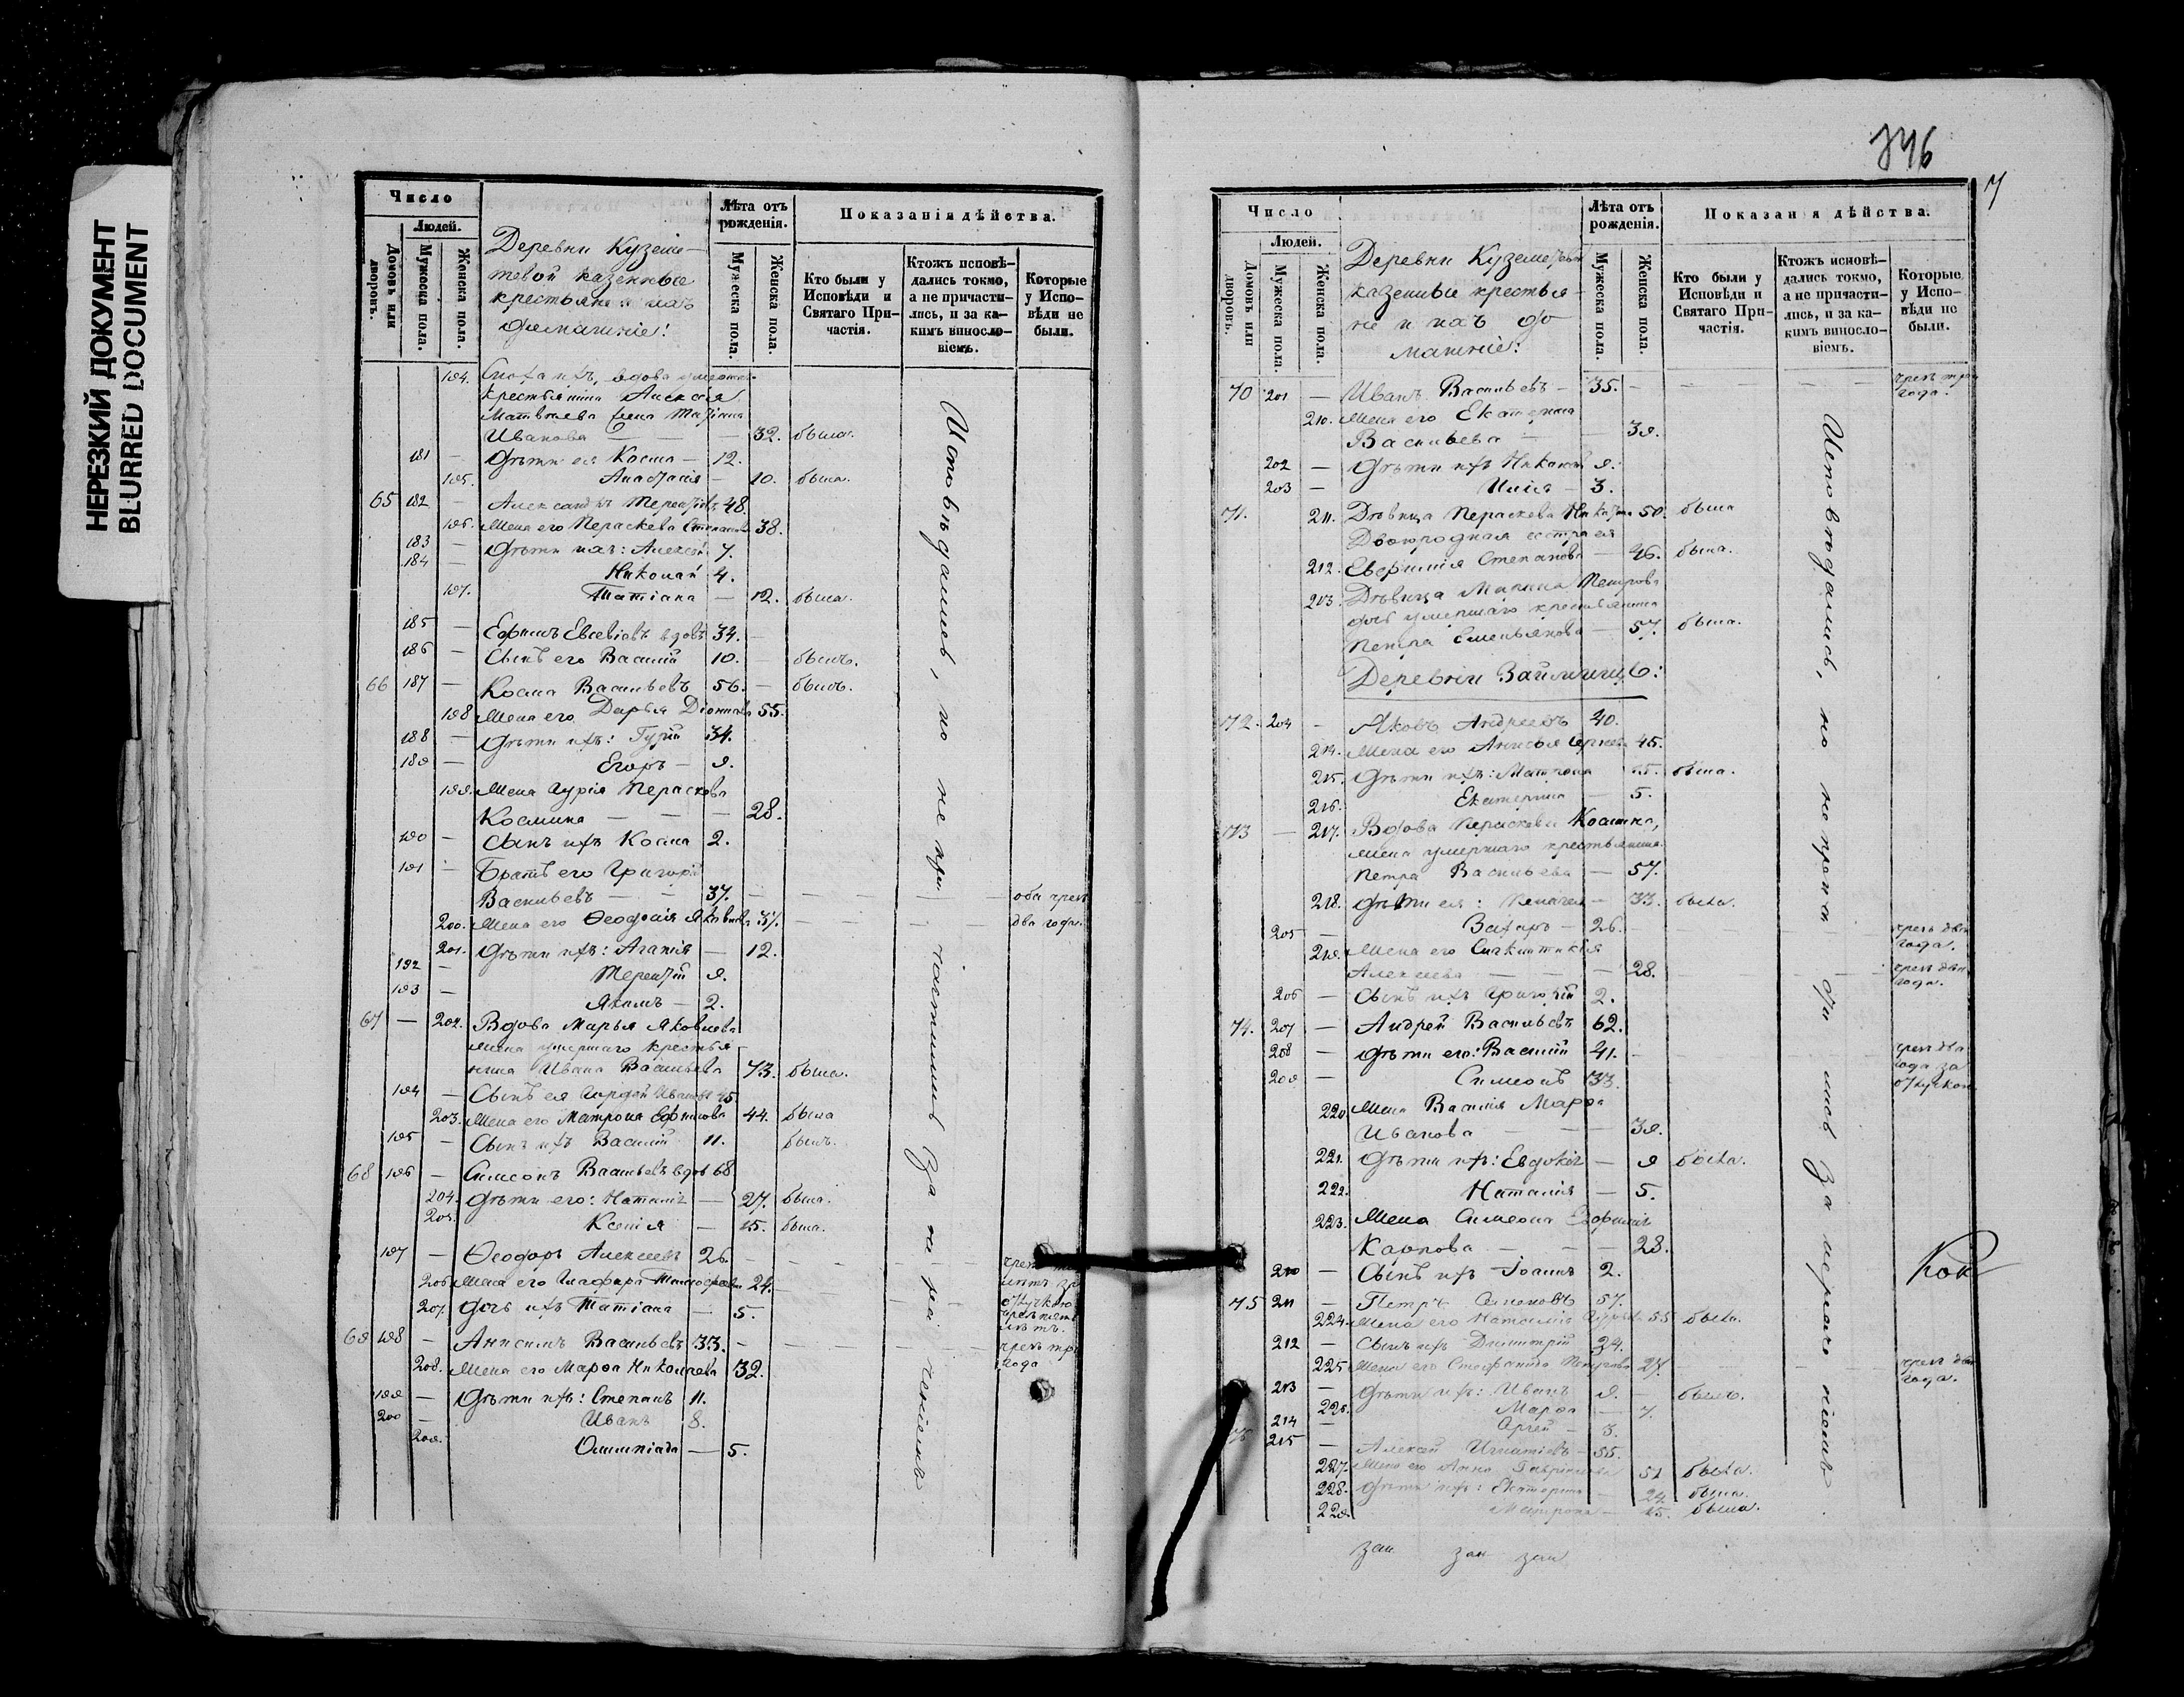 НЕРЕЗКИЙ ДОКУМЕНТ
BLURRED DOCUMENT
Число
Людей.
Домовъ или дворовъ.
Мужеска пола.
Женска пола.
Деревни Куземе-
тевой казенные
крестьяне и ихъ
домашніе:
Лѣта отъ рожденія.
Мужеска пола.
Женска пола.
Показанія дѣйства.
Кто были у Исповѣди и Святаго Причастія.
Ктожъ исповѣдались токмо, а не причастились, и за какимъ винословіемъ.
Которые у Исповѣди не были.
194. вдова
крестьянина Алексѣя
Матвѣева
Иванова — 32. была.
181 — Дѣти ея Косма — 12.
195. Анастасія — 10. была.
65 182 — Александръ Терентьевъ 48.
196. Жена его Параскева Степанова 38.
183 — Дѣти ихъ: Алексѣй 7.
184 — Николай 4.
197. Татіана — 12. была.
185 — Ефимъ Евсевіевъ вдовъ 34. —
186 — Сынъ его Василій 10. — былъ.
66 187 — Косма Васильевъ 56. — былъ.
198 Жена его Дарья 55.
188 — Дѣти ихъ: Гурій 34.
189 — Егоръ — 9.
199. Жена Гурія Параскева
Космина — 28.
190 — Сынъ ихъ Косма 2.
191 — Братъ его Григорій
Васильевъ — 37. — оба чрезъ
200. Жена его Ѳеодосія Яковлева 37. — два года.
201. Дѣти ихъ: Агапія — 12.
192 — Терентій 9.
193 — Якимъ — 2.
67 — 202. Вдова Марья Яковлева
жена умершаго крестья-
нина Ивана Васильева 73. была.
194 — Сынъ ея Гордѣй Ивановъ 45.
203. Жена его Матрона Ефимова 44. была
195 — Сынъ ихъ Василій 11. былъ.
68 196 — Симеонъ Васильевъ вдовъ 68
204. Дѣти его: Наталія — 27. была.
205. Ксенія — 15. была.
197 — Ѳеодоръ Алексѣевъ 26 — чрезъ
206 Жена его Глафира 24. — лѣтъ за
отлучкою
207. Дочь ихъ Татіана — 5. чрезъ пять
лѣтъ.
69 198 — Анисимъ Васильевъ 33. — чрезъ три
208. Жена его Марѳа Николаева 32. года
199 — Дѣти ихъ: Степанъ 11.
200 — Иванъ 8.
209. Олимпіада — 5.
Исповѣдались, но не причастились за
746
7
Число
Людей.
Домовъ или дворовъ.
Мужеска пола.
Женска пола.
Деревни Куземетевой
казенные крестья-
не и ихъ до-
машніе:
Лѣта отъ рожденія.
Мужеска пола.
Женска пола.
Показанія дѣйства.
Кто были у Исповѣди и Святаго Причастія.
Ктожъ исповѣдались токмо, а не причастились, и за какимъ винословіемъ.
Которые у Исповѣди не были.
70 201 — Иванъ Васильевъ — 35. — чрезъ три
года.
210. Жена его Екатерина
Васильева — 39.
202 — Дѣти ихъ 9.
203 — Илія — 3.
71. 211. Дѣвица Параскева 50. была
Двоюродная сестра ея
212. Евфимія Степанова — 46. была.
213. Дѣвица Марина Петрова
дочь умершаго крестьянина
Петра Емельянова — 57. была.
Деревни
72. 204 — Яковъ Андреевъ 40.
214. Жена его Анисья 45.
215. Дѣти ихъ: Матрона 15. была.
216. Екатерина — 5.
73 — 217. Вдова Параскева Космина,
жена умершаго крестьянина
Петра Васильева — 57.
218. Дѣти ея: Пелагея — 33. была.
205 — Захаръ — 26. — чрезъ два
года.
219. Жена его Синклитикія
Алексѣева — 28. — чрезъ два
года.
206 — Сынъ ихъ Григорій 2.
74. 207 — Андрей Васильевъ 62.
208 — Дѣти его: Василій 41. — чрезъ два
года за
209 — Симеонъ 33. отлучкою
220 Жена Василія Марѳа
Иванова — 39.
221. Дѣти ихъ: Евдокія — 9 была.
222. Наталія — 5.
223. Жена Симеона
Карпова — 28.
210 — Сынъ ихъ Іоаннъ 2.
75 211 — Петръ 57.
224. Жена его Наталія 55 была.
212 — Сынъ ихъ Димитрій 24.
225 Жена его Стефанида Петрова 27. — чрезъ два
года.
213 — Дѣти ихъ: Иванъ 9. — былъ.
226. Марѳа — 7.
214 — 3.
76 215 — Алексѣй Игнатіевъ — 55.
227. Жена его Анна 51 была.
228. Дѣти ихъ: Екатерина — 24 была.
229. Матрона — 15. была.
Исповѣдались, но не прича
зан зан зан